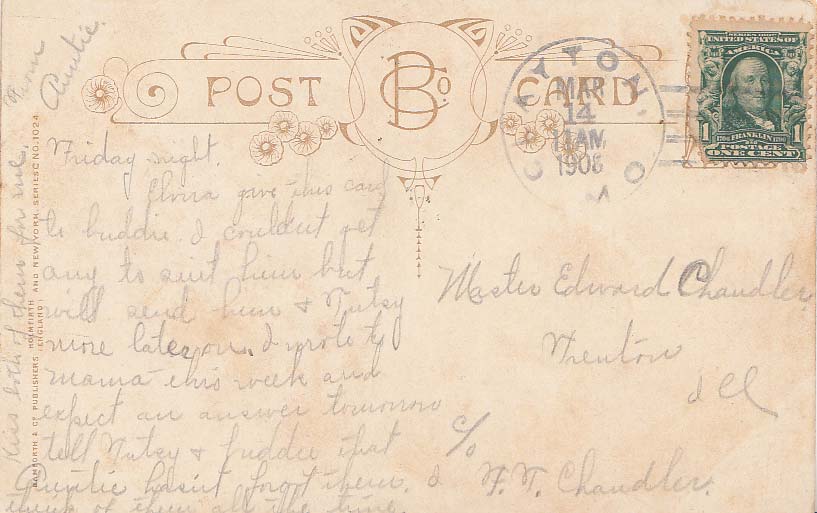 POST CARD
B Co
CLAYTON, MO
MAR
14
11 AM
1908
SERIES 1902
UNITED STATES OF
AMERICA
1 1706 FRANKLIN 1790 1
POSTAGE
ONE CENT
Friday night.
Elvira give this card
to buddie. I couldnt get
any to suit him but
will send him & Tutsy
more later on. I wrote to
mama this week and
expect an answer tomorrow
tell Tutsy & buddie that
Auntie hasn't forgot them. I
think of them all the time.
Kiss both of them for me.
From
Auntie.
BAMFORTH & CO PUBLISHERS HOLMFIRTH (ENGLAND) AND NEW YORK. SERIES C NO. 1024
Master Edward Chandler,
Trenton
Ill
c/o F. T. Chandler.